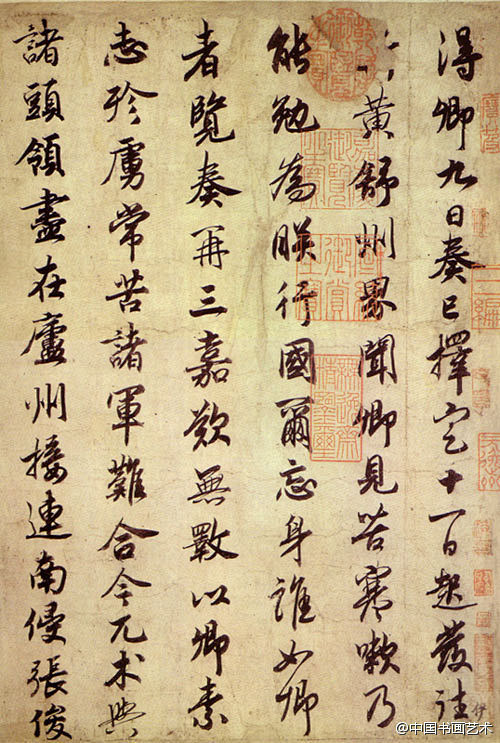 得卿九日奏已擇定十一日起發往
蘄黃舒州界聞卿見苦寒嗽乃
能勉為朕行國爾忘身誰如卿
者覽奏再三嘉歎無斁以卿素
志殄虜常苦諸軍難合今兀朮與
諸頭領盡在廬州接連南侵張俊
@中国书画艺术